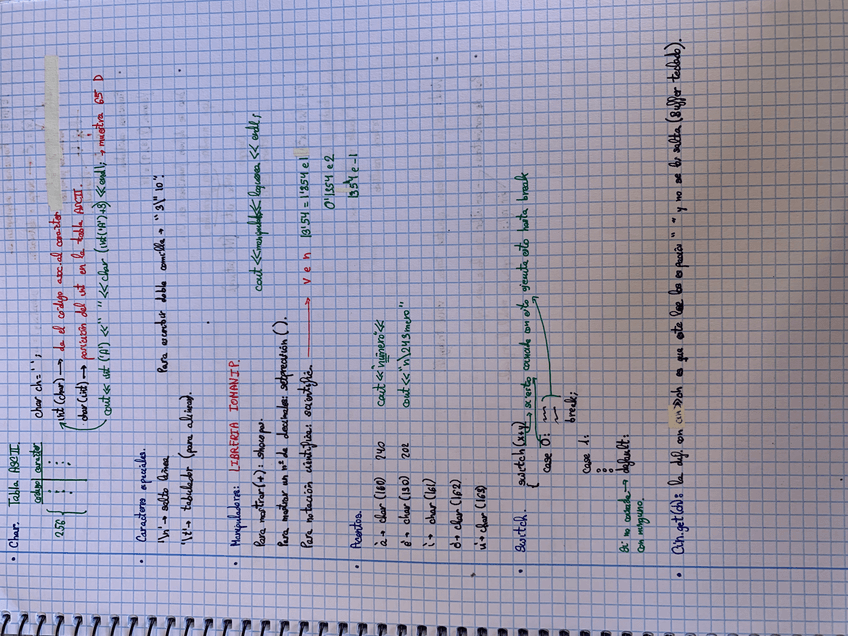 • Char. Tabla ASCII
código caracter
256 { : : :
char ch=' ';
int (char) → da el código asc. al caracter
char (int) → posición del int en la tabla ASCII.
cout << int ('A') << " " << char (int('A')+3) << endl; → muestra 65 D
• Caracteres especiales.
'\n' → salto línea
'\t' → tabulador (para alinear).
Para escribir doble comilla → " 3\" 10".
• Manipuladores: LIBRERIA IOMANIP.
Para mostrar (+): showpos.
cout << << << endl;
Para mostrar un nº de decimales: setprecision ().
Para notación científica: scientific. → v e n 13'54 = 1'354 e1
0'1354 e2
1354 e-1
• Acentos.
á → char (160) 240 cout << "número" <<
é → char (130) 202 cout << "n\243mero"
í → char (161)
ó → char (162)
ú → char (163)
• Switch. switch (x+y) → si esto coincide con esto ejecuta esto hasta break
{
case 0:
break;
case 1:
:
Si no coincide → default:
con ninguno.
• Cin.get(ch): la dif. con cin>>ch es que este lee los espacios " " y no se los salta (Buffer teclado).